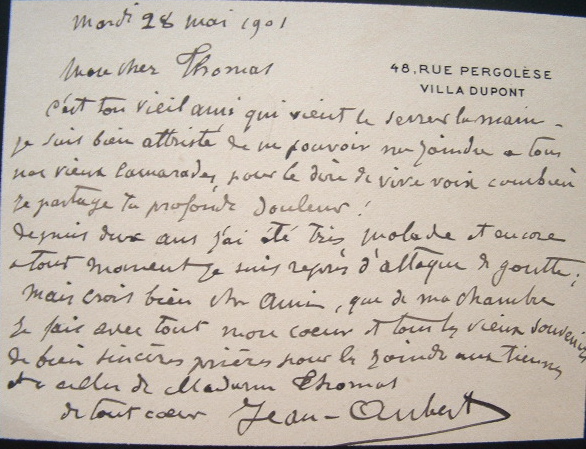 Mardi 28 mai 1901
48, RUE PERGOLÈSE
VILLA DUPONT
Mon cher Thomas
C'est ton vieil ami qui vient te serrer la main -
je suis bien attristé de ne pouvoir me joindre a tous
nos vieux Camarades, pour te dire de vive voix combien
je partage ta profonde douleur !
depuis deux ans j'ai été très malade et encore
a tout moment je suis repris d'attaque de goutte ;
mais crois bien cher Ami, que de ma chambre
je fais avec tout mon coeur et tous les vieux souvenirs
de bien sincères prières pour les joindre aux tiennes
et a celles de Madame Thomas
de tout coeur Jean-Aubert